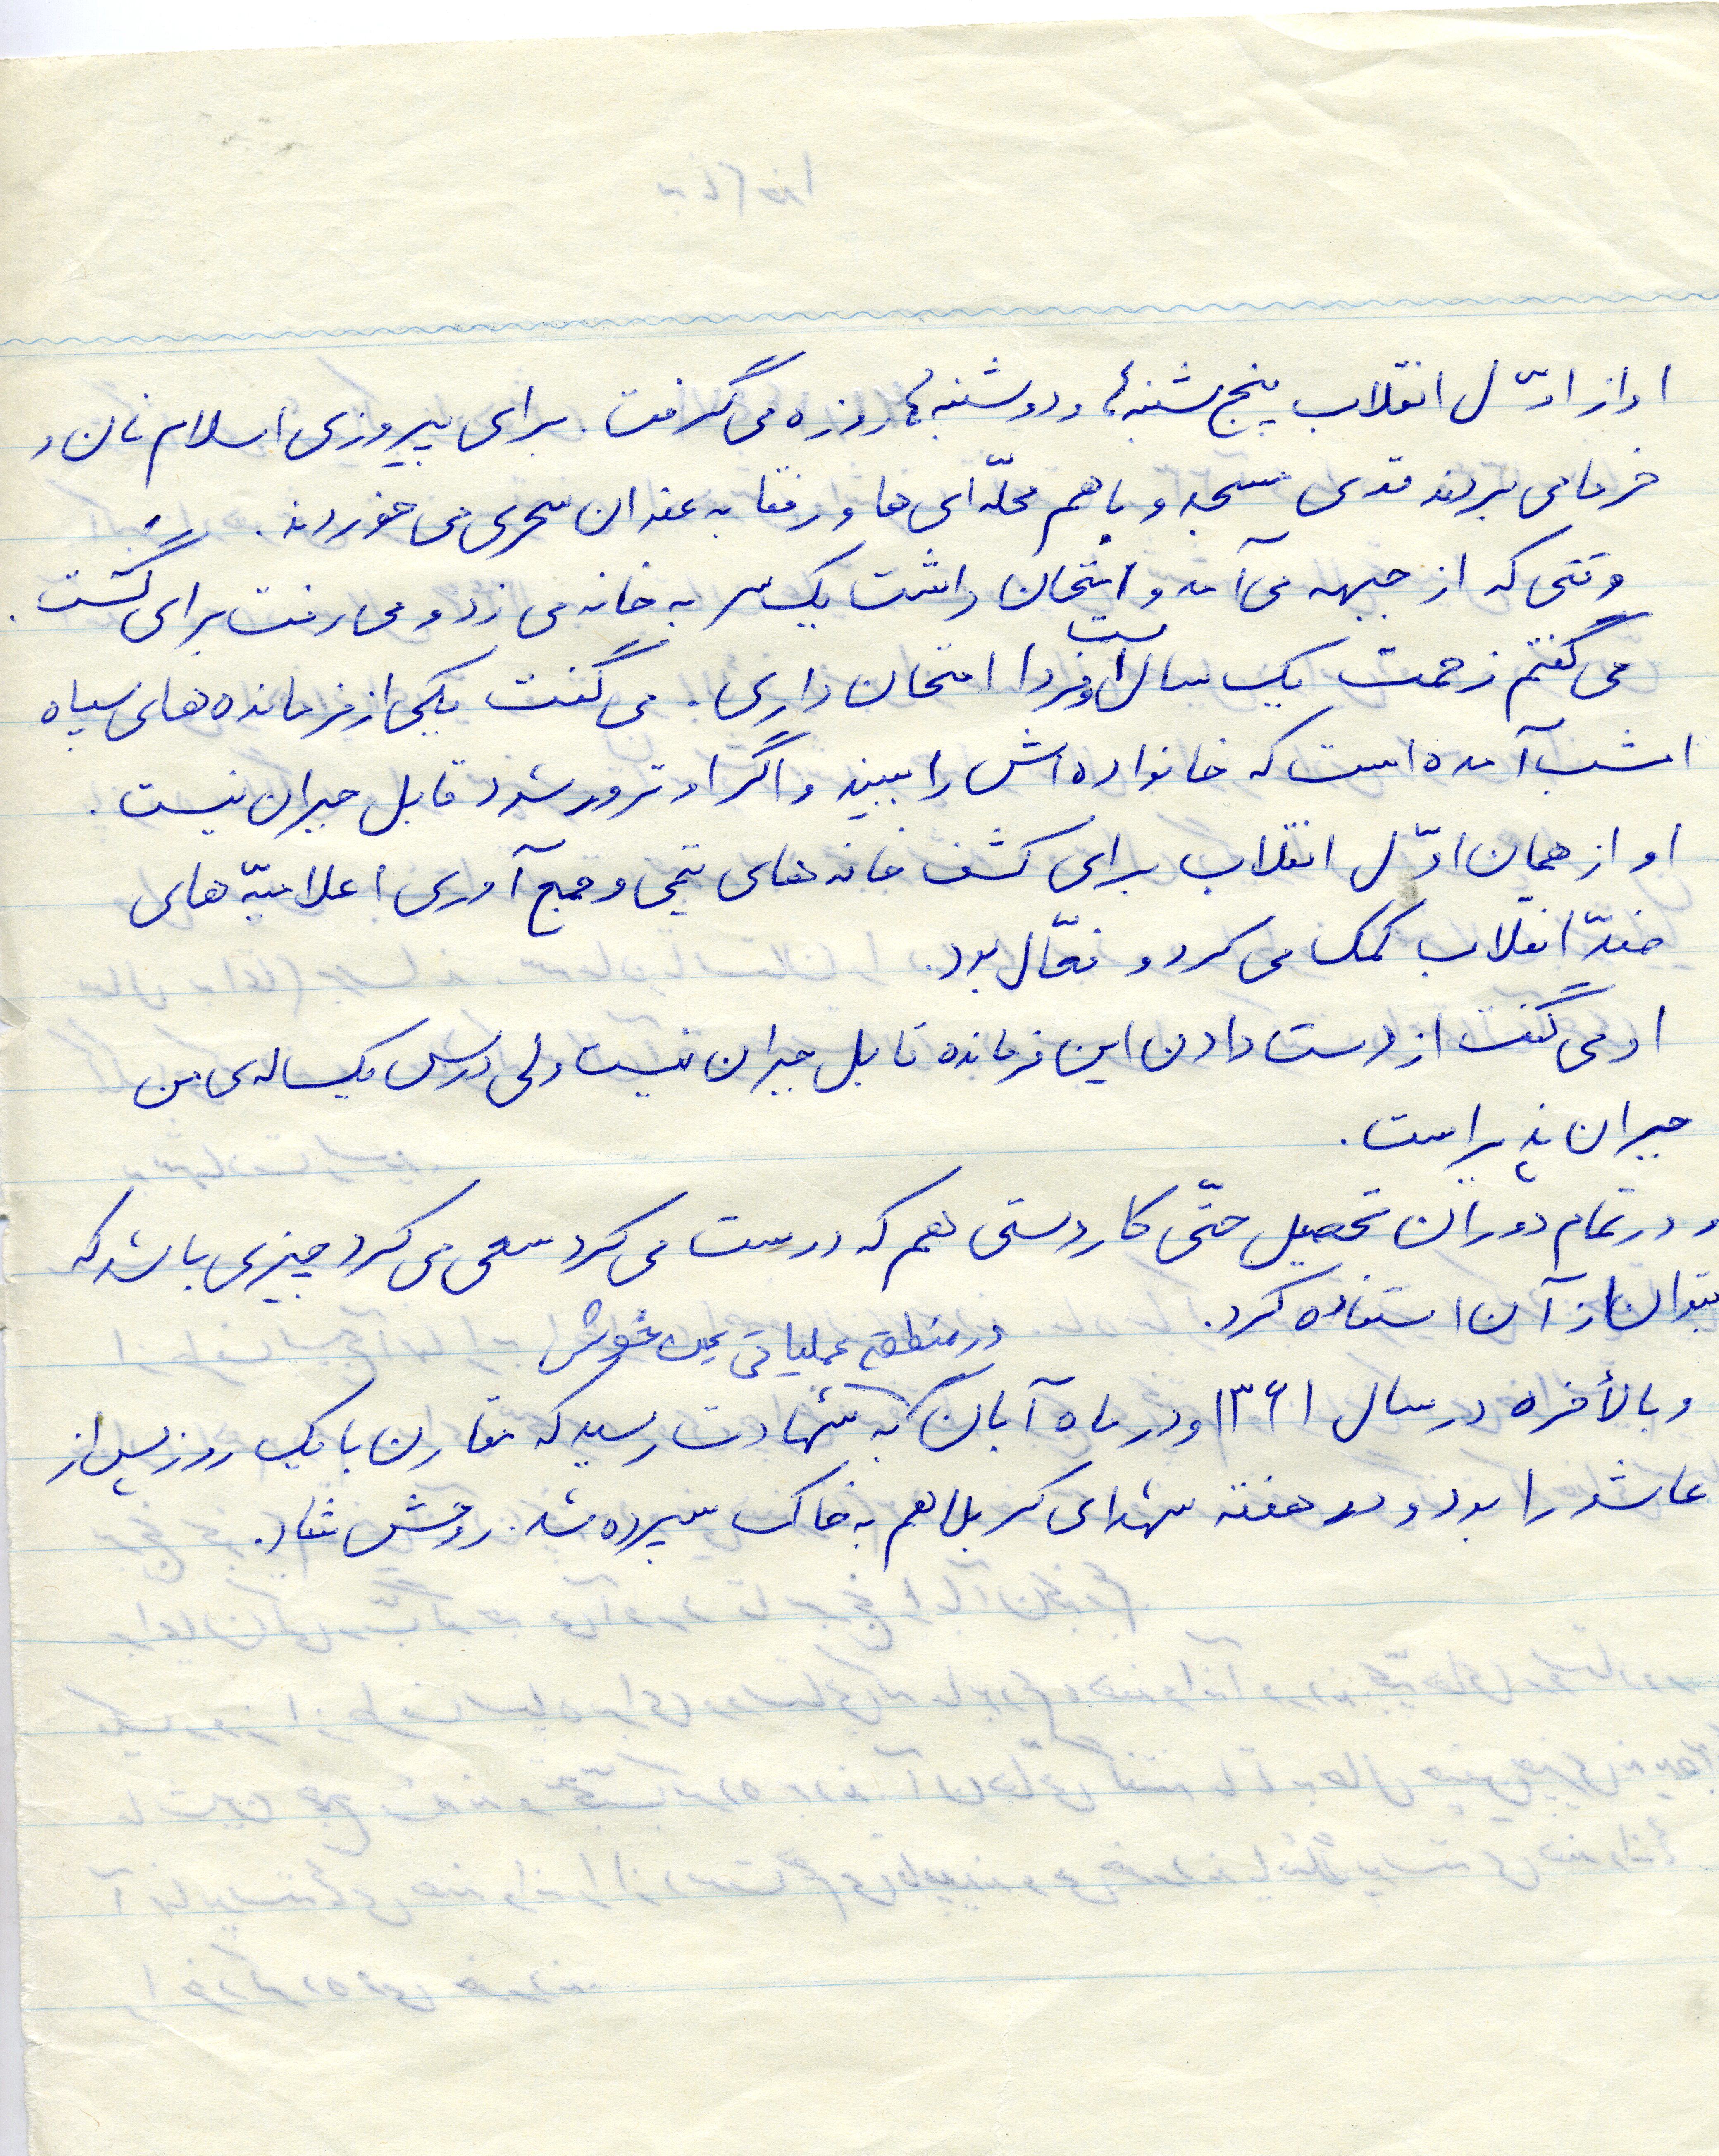 او از اوّل انقلاب پنج‌شنبه‌ها و دوشنبه‌ها روزه می‌گرفت. برای پیروزی اسلام نان و
خرما می‌بردند توی مسجد و با هم محلّه‌ای‌ها و رفقا به عنوان سحری می‌خوردند.
وقتی که از جبهه می‌آمد و امتحان داشت یک سر به خانه می‌زد و می‌رفت برای گشت.
می‌گفتم زحمت یک سال است و فردا امتحان داری. می‌گفت یکی از فرمانده‌های سپاه
امشب آمده است که خانواده‌اش را ببیند و اگر او ترور شود قابل جبران نیست.
او از همان اوّل انقلاب برای کشف خانه‌های تیمی و جمع‌آوری اعلامیّه‌های
ضدّ انقلاب کمک می‌کرد و فعّال بود.
او می‌گفت از دست دادن این فرمانده قابل جبران نیست ولی درس یکساله‌ی من
جبران پذیر است.
و در تمام دوران تحصیل حتّی کاردستی هم که درست می‌کرد سعی می‌کرد چیزی باشد که
بتوان از آن استفاده کرد.
در منطقه عملیاتی عین خوش
و بالأخره در سال ۱۳۶۱ و در ماه آبان به شهادت رسید که تقارن با یک روز پس از
عاشورا بود و در هفته شهدای کربلا هم به خاک سپرده شد. روحش شاد.